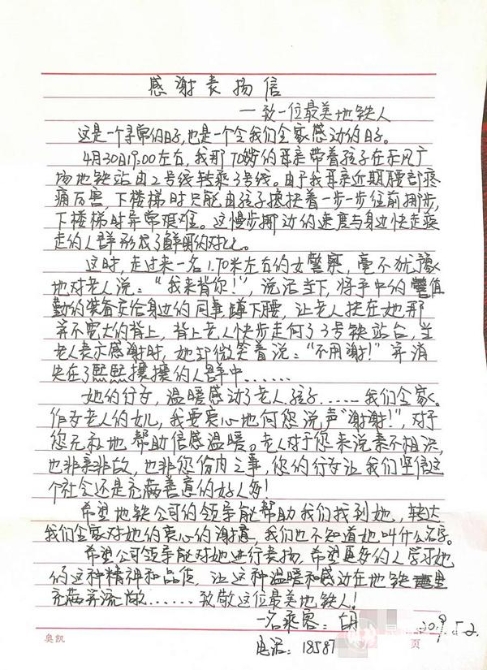 感谢表扬信
——致一位最美地铁人
这是一个寻常的日子,也是一个令我们全家感动的日子。
4月30日17:00左右,我那70多岁的母亲带着孩子在广
场地铁站由2号线转乘3号线。由于我母亲近期腰部疼
痛厉害,下楼梯时只能由孩子搀扶着一步一步往前挪步,
下楼梯时异常艰难。这慢步挪动的速度与身边快走乘
走的人群形成了鲜明的对比。
这时,走过来一名1.70米左右的女警察,毫不犹豫
地对老人说:“我来背你!”,说话当下,将手中的值
勤的装备交给身边的同事,蹲下腰,让老人扶在她那
并不宽大的背上,背上老人快步走向了3号铁站台,当
老人表示感谢时,她却微笑着说:“不用谢!”并消
失在了熙熙攘攘的人群中……
她的行为,温暖感动了老人、孩子……我们全家。
作为老人的女儿,我要衷心地向您说声“谢谢!”,对于
您无私地帮助倍感温暖。老人对于您来说素不相识,
也非亲非故,也非您份内之事,您的行为让我们坚信这
个社会还是充满善意的好人多!
希望地铁公司的领导能帮助我们找到她,转达
我们全家对她的衷心的谢意,我们也不知道她叫什么名字。
希望公司领导能对她进行表扬,希望更多的人学习她
的这种精神和品质,让这种温暖和感动在地铁里
充满并流淌……致敬这位最美地铁人!
一名乘客:胡
2019.5.2.
电话:18587
奥凯
页